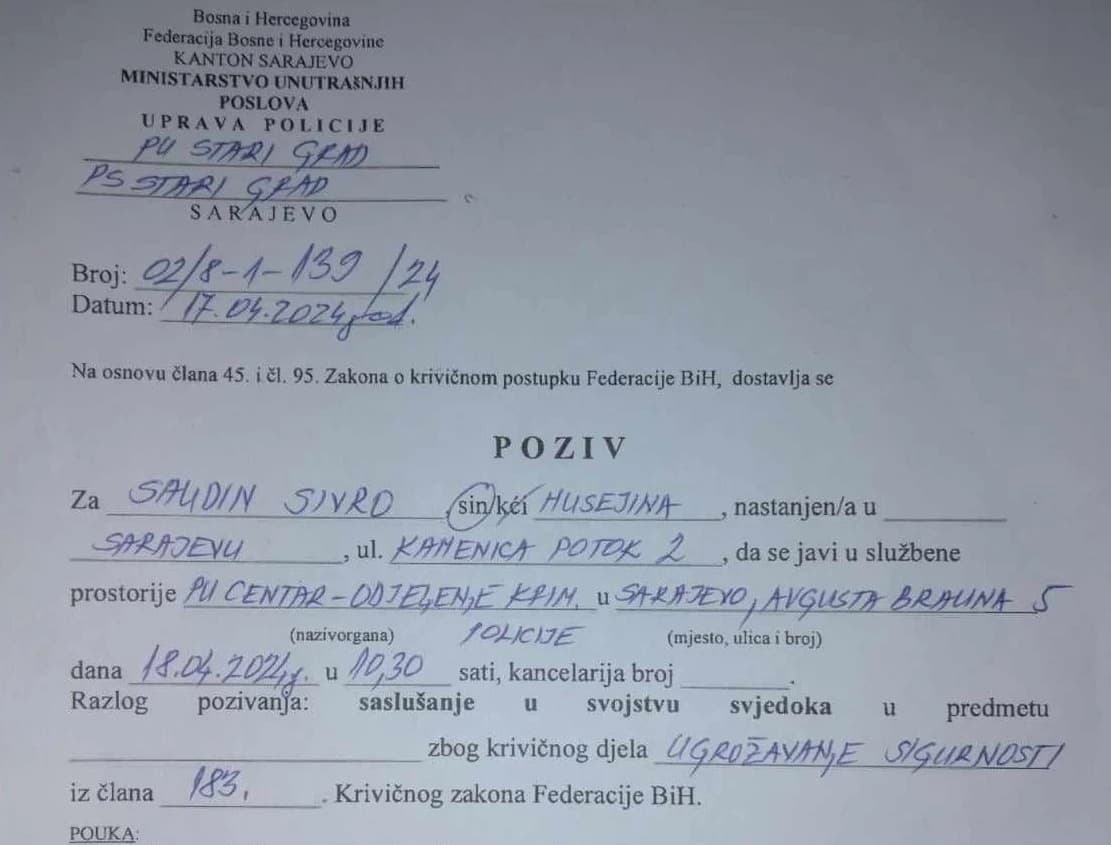 Bosna i Hercegovina
Federacija Bosne i Hercegovine
KANTON SARAJEVO
MINISTARSTVO UNUTRAŠNJIH
POSLOVA
UPRAVA POLICIJE
PU STARI GRAD
PS STARI GRAD
SARAJEVO
Broj: 02/8-1-139 /24
Datum: 17.04.2024 god.
Na osnovu člana 45. i čl. 95. Zakona o krivičnom postupku Federacije BiH, dostavlja se
POZIV
Za SAUDIN SIVRO, sin/kći HUSEJINA, nastanjen/a u
SARAJEVU, ul. KAMENICA POTOK 2, da se javi u službene
prostorije PU CENTAR-ODJELJENJE KRIM. u SARAJEVO, AVGUSTA BRAUNA 5
(nazivorgana) POLICIJE (mjesto, ulica i broj)
dana 18.04.2024.g. u 10,30 sati, kancelarija broj .
Razlog pozivanja: saslušanje u svojstvu svjedoka u predmetu
zbog krivičnog djela UGROŽAVANJE SIGURNOSTI
iz člana 183. . Krivičnog zakona Federacije BiH.
POUKA: